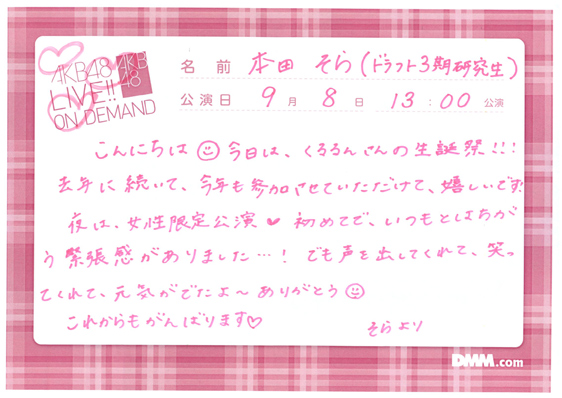 AKB48
LIVE!!
ON DEMAND
AKB
48
名前 本田 そら(ドラフト3期研究生)
公演日 9月 8日 13:00 公演
こんにちは☺今日は、くるるんさんの生誕祭!!!
去年に続いて、今年も参加させていただけて、嬉しいです!
夜は、女性限定公演♥ 初めてで、いつもとはちが
う緊張感がありました…! でも声を出してくれて、笑っ
てくれて、元気がでたよ〜ありがとう☺
これからもがんばります♡
そらより
DMM.com